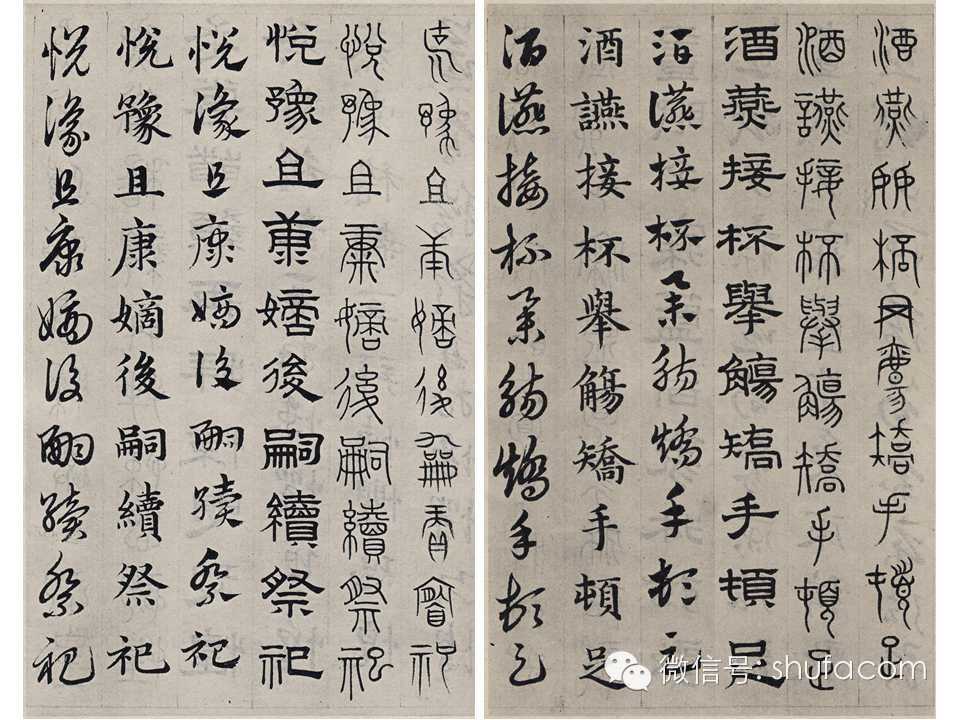 酒燕接杯舉觴矯手頓足
酒讌接杯舉觴矯手頓足
酒燕接杯舉觴矯手頓足
酒讌接杯舉觴矯手頓足
酒讌接杯舉觴矯手頓足
酒讌接杯舉觴矯手頓足
悅豫且康嫡後嗣續祭祀
悅豫且康嫡後嗣續祭祀
悅豫且康嫡後嗣續祭祀
悅豫且康嫡後嗣續祭祀
悅豫且康嫡後嗣續祭祀
悅豫且康嫡後嗣續祭祀
微信号: shufacom